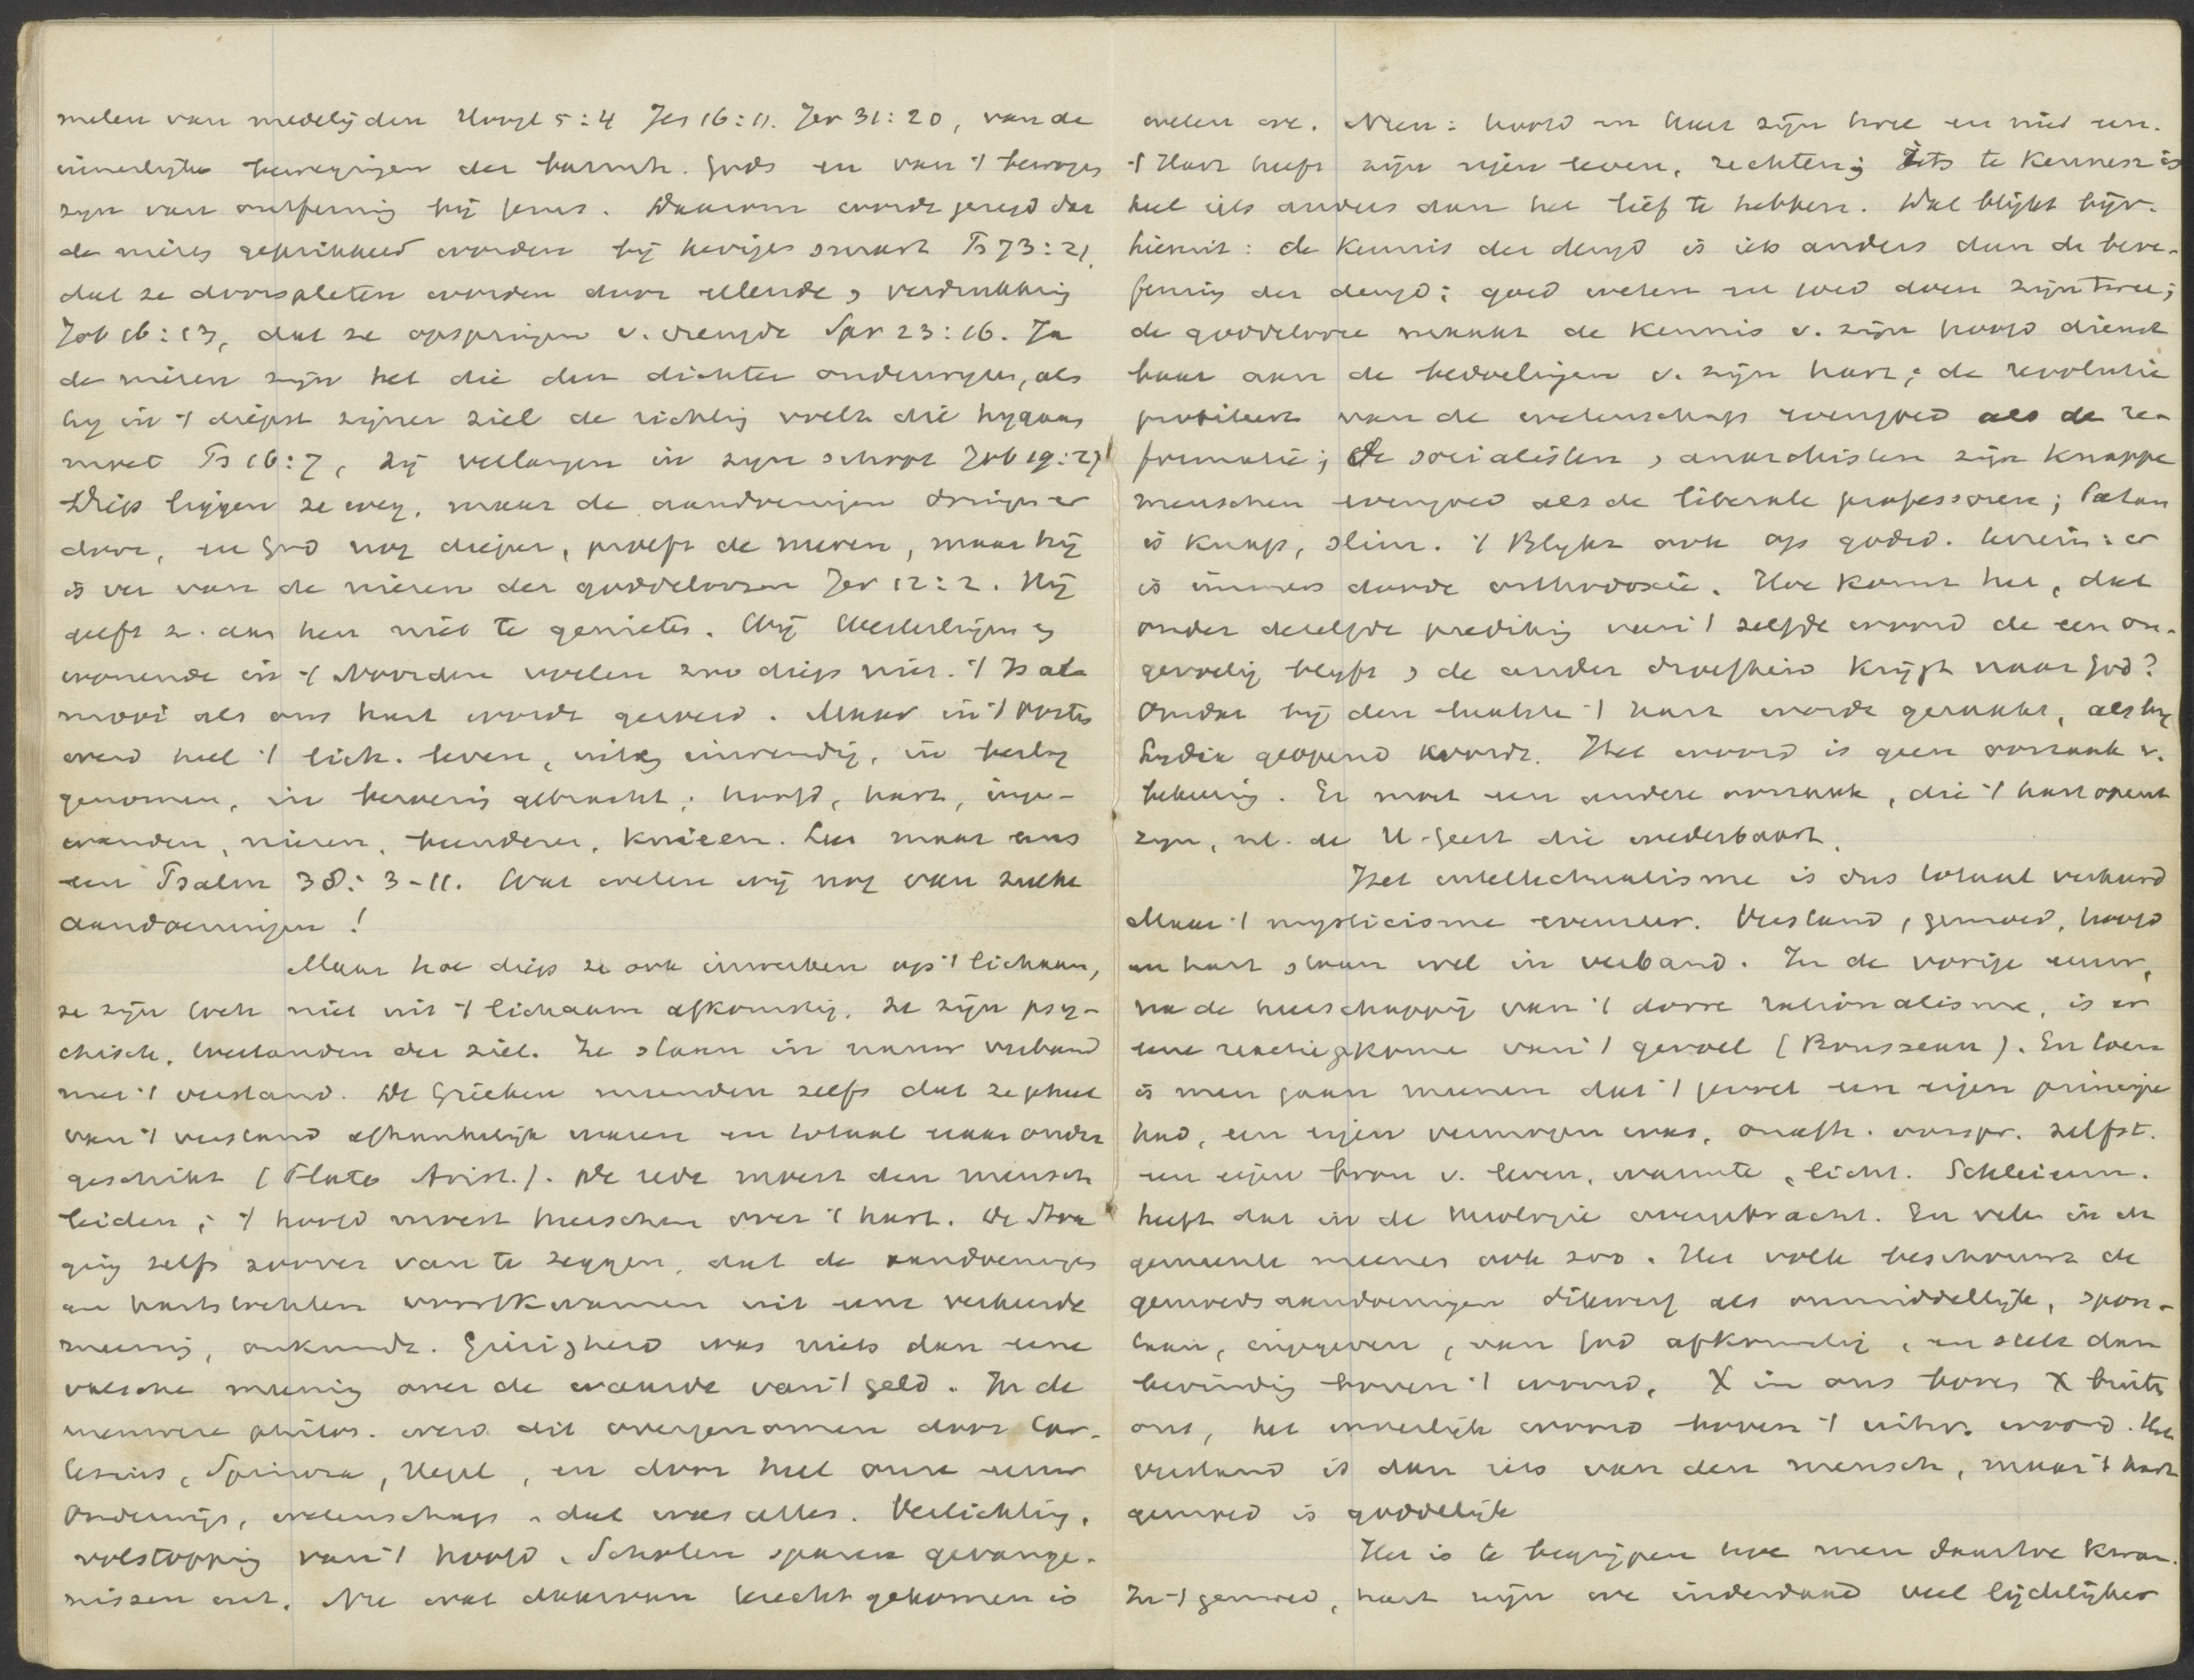 melen van medelijden Hoogl 5:4 Jes 16:11. Jer 31:20, van de
innerlijke bewegingen der barmh. Gods en van 't bewogen
zijn van ontferming bij Jezus. Daarom wordt gezegd dat
de nieren geprikkeld worden bij hevige smart Ps 73:21,
dat ze doorspleten worden door ellende, verdrukking
Job 16:13, dat ze opspringen v. vreugde Spr 23:16. Ja
de nieren zijn het die den dichter onderwijzen, als
hij in 't diepst zijner ziel de richting voelt die hij gaan
moet Ps 16:7, zij verlangen in zijn schoot Job 19:27
Diep liggen ze weg, maar de aandoeningen dringen er
door, en God nog dieper, proeft de nieren, maar hij
is ver van de nieren der goddeloozen Jer 12:2. Hij
geeft z. aan hen niet te genieten. Wij Westerlingen
wonende in 't Noorden voelen zoo diep niet. 't Is al
mooi als ons hart wordt geroerd. Maar in 't Oosten
werd heel 't lich. leven, uitw inwendig, in beslag
genomen, in beroering gebracht; hoofd, hart, inge-
wanden, nieren, beenderen, knieën. Lees maar eens
een Psalm 38:3-11. Wat weten wij nog van zulke
aandoeningen!
Maar hoe diep ze ook inwerken op 't lichaam,
ze zijn toch niet uit 't lichaam afkomstig. Ze zijn psy-
chisch, toestanden der ziel. Ze staan in nauw verband
met 't verstand. De Grieken meenden zelfs dat ze geheel
van 't verstand afhankelijk waren en totaal er aan onder
geschikt (Plato Arist.). De rede moest den mensch
leiden; 't hoofd moest heerschen over 't hart. De Stoa
ging zelfs zoover van te zeggen, dat de aandoeningen
en hartstochten voortkwamen uit eene verkeerde
meening, onkunde. Gierigheid was niets dan eene
valsche meening over de waarde van 't geld. In de
nieuwere philos. werd dit overgenomen door Car-
tesius, Spinoza, Hegel, en door heel onze eeuw
Onderwijs, wetenschap, dat was alles. Verlichting,
volstopping van 't hoofd. Scholen sparen gevange-
nissen uit. Nu wat daarvan terecht gekomen is
weten we. Neen: hoofd en hart zijn twee en niet een.
't Hart heeft zijn eigen leven, rechten; Iets te kennen is
heel iets anders dan het lief te hebben. Dat blijkt bijv.
hieruit: de kennis der deugd is iets anders dan de beoe-
fening der deugd; goed weten en goed doen zijn twee;
de goddelooze maakt de kennis v. zijn hoofd dienst
baar aan de bedoelingen v. zijn hart; de revolutie
profiteert van de wetenschap evengoed als de re-
formatie; de socialisten, anarchisten zijn knappe
menschen evengoed als de liberale professoren; Satan
is knap, slim. 't Blijkt ook op godsd. terrein: er
is immers doode orthodoxie. Hoe komt het, dat
onder dezelfde prediking van 't zelfde woord de een on-
gevoelig blijft, de ander droefheid krijgt naar God?
Omdat bij den laatste 't hart wordt geraakt, als bij
Lydia geopend wordt. Het woord is geen oorzaak v.
bekeering. Er moet een andere oorzaak, die 't hart opent
zijn, nl. de H. Geest die wederbaart.
Het intellectualisme is dus totaal verkeerd
Maar 't mysticisme evenzeer. Verstand, gemoed, hoofd
en hart staan wel in verband. In de vorige eeuw,
na de heerschappij van 't dorre rationalisme, is er
eene reactie gekomen van 't gevoel (Rousseau). En toen
is men gaan meenen dat 't gevoel een eigen principe
had, een eigen vermogen was, onafh. oorspr. zelfst.
een eigen bron v. leven, warmte, licht. Schleierm.
heeft dat in de theologie overgebracht. En velen in de
gemeente meenen ook zoo. Het volk beschouwt de
gemoedsaandoeningen dikwerf als onmiddellijk, spon-
taan, ingegeven, van God afkomstig, en stelt dan
bevinding boven 't woord, X in ons boven X buiten
ons, het innerlijk woord boven 't uitw. woord. Het
verstand is dan iets van den mensch, maar 't hart
gemoed is goddelijk
Het is te begrijpen hoe men daartoe kwam.
In 't gemoed, hart zijn we inderdaad veel lijdelijker